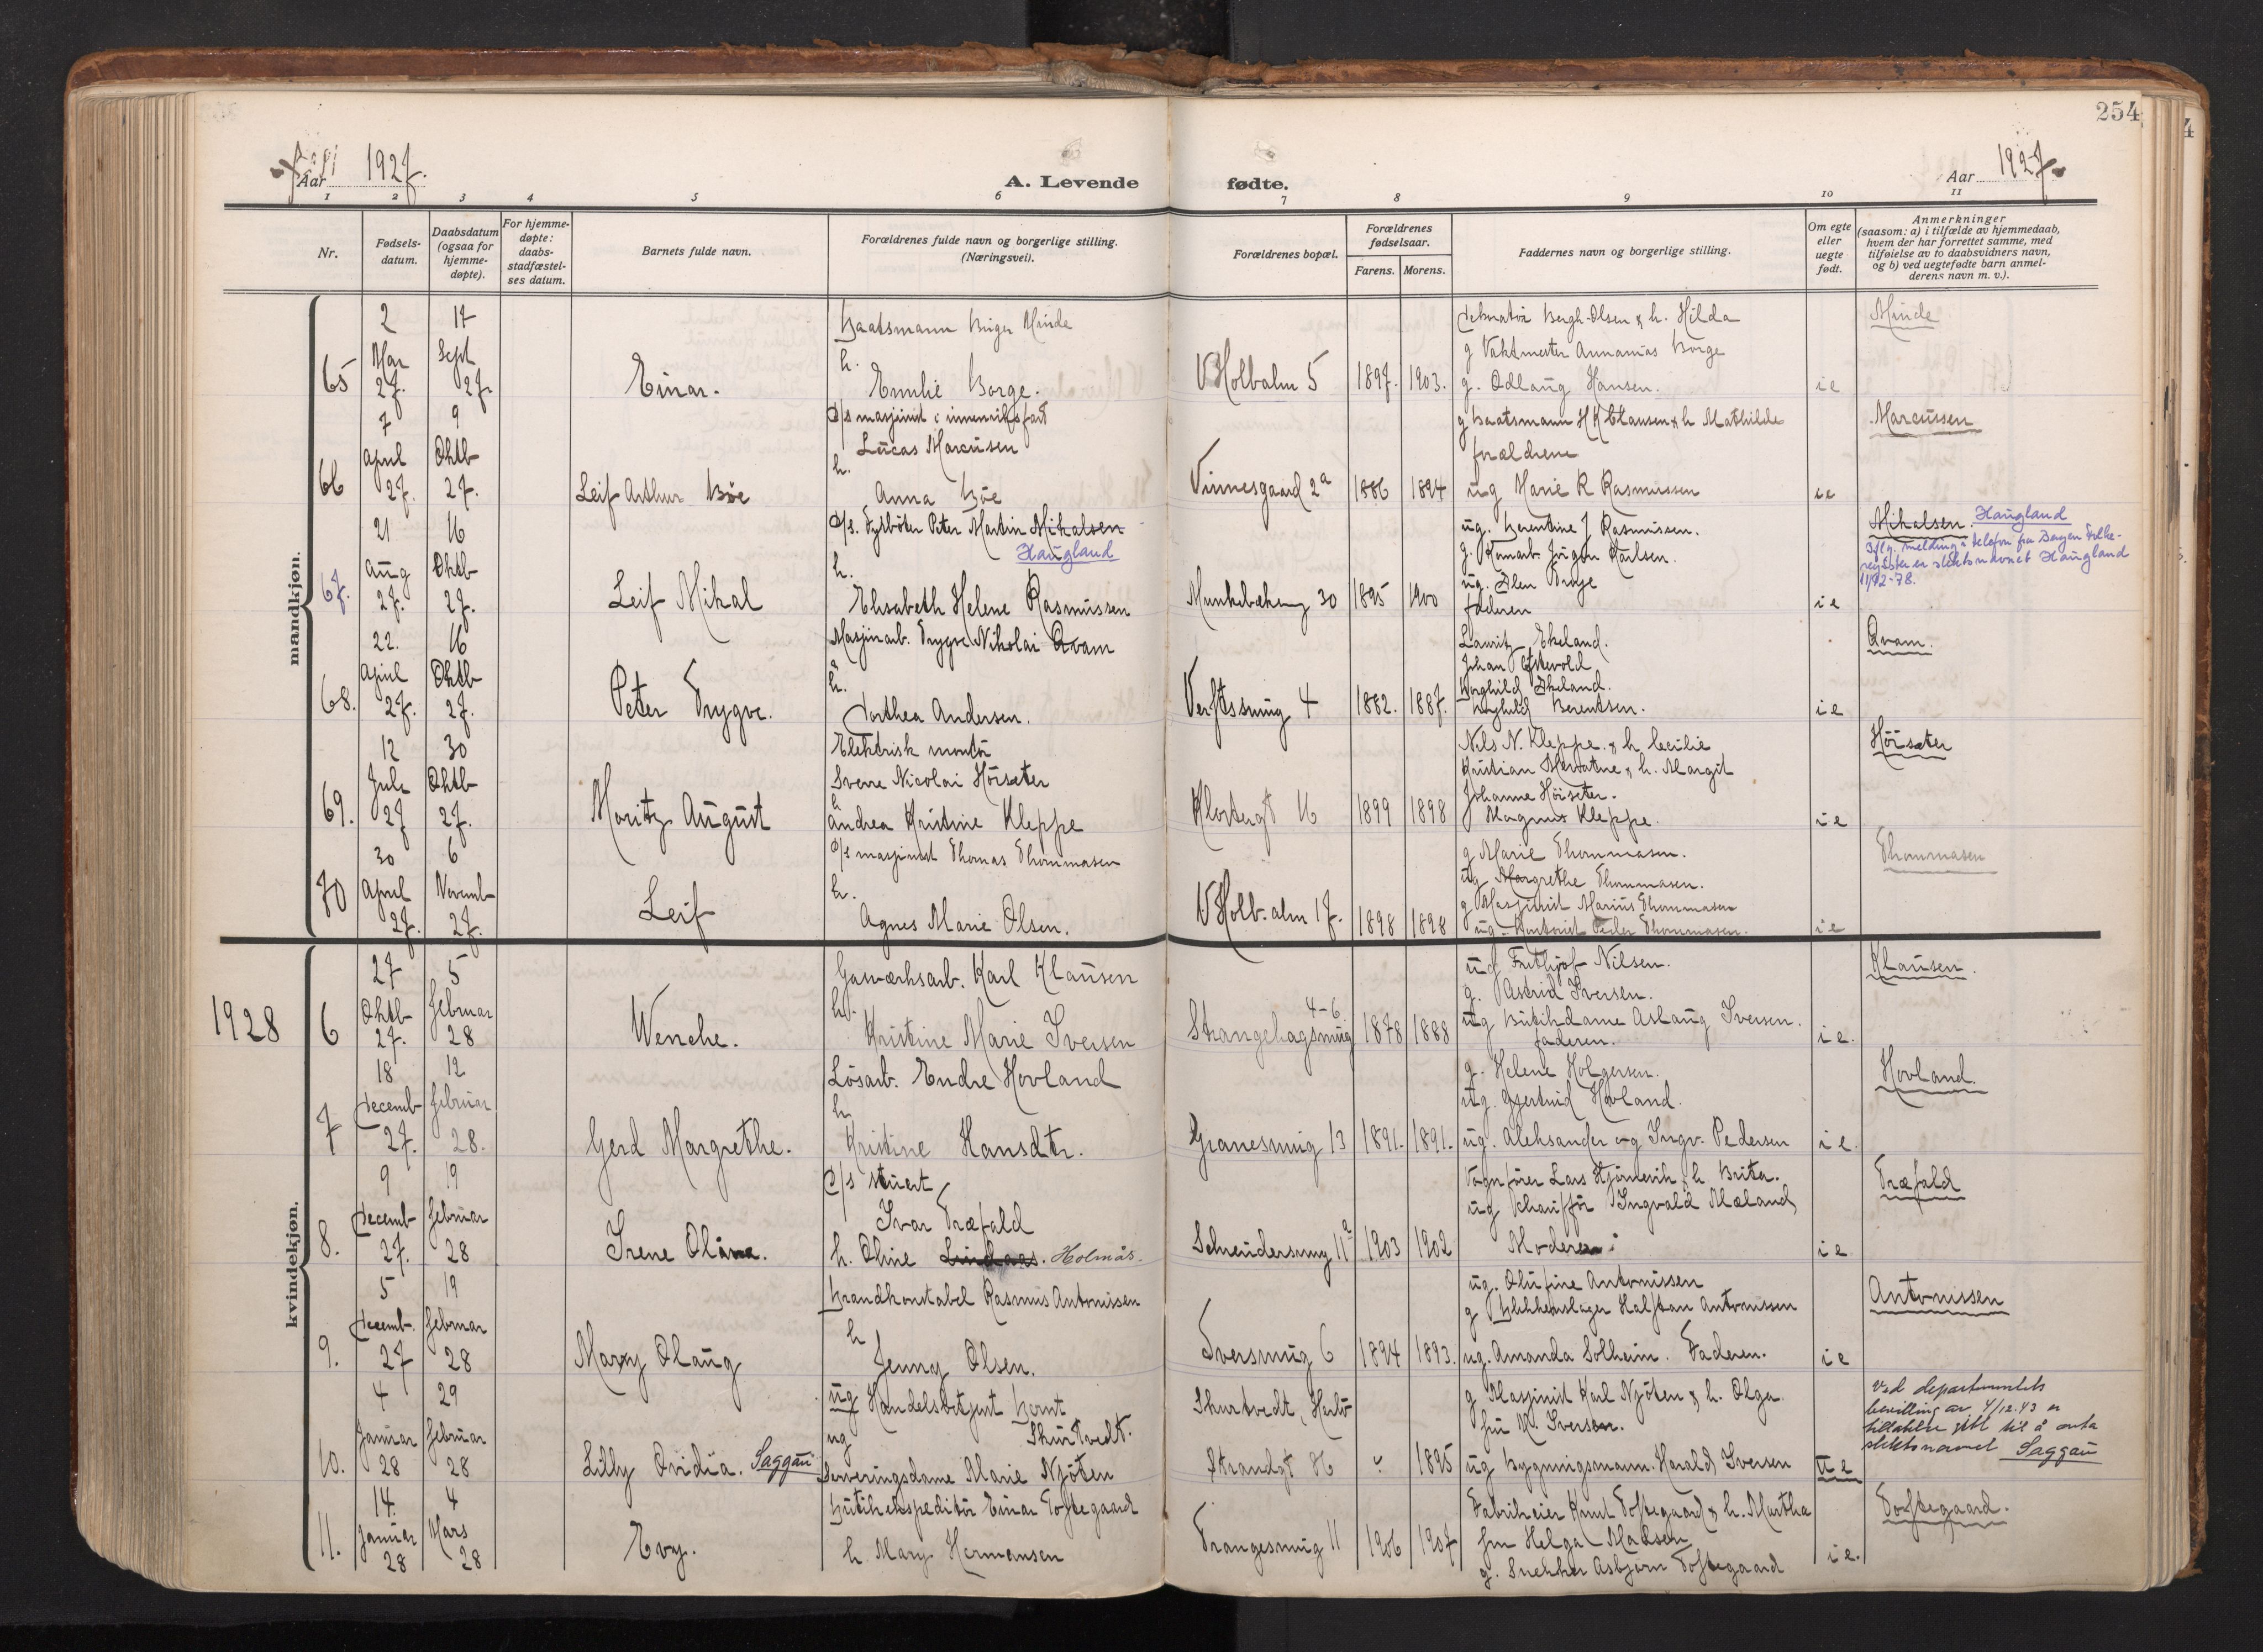 254
Aar 1927.
A. Levende fødte.
Aar 1927.
1 2 3 4 5 6 7 8 9 10 11
Nr.
Fødsels-
datum.
Daabsdatum
(ogsaa for
hjemme-
døpte).
For hjemme-
døpte:
daabs-
stadfæstel-
ses datum.
Barnets fulde navn.
Forældrenes fulde navn og borgerlige stilling.
(Næringsvei).
Forældrenes bopæl.
Forældrenes
fødselsaar.
Farens. Morens.
Faddernes navn og borgerlige stilling.
Om egte
eller
uegte
født.
Anmerkninger
(saasom: a) i tilfælde av hjemmedaab,
hvem der har forrettet samme, med
tilføielse av to daabsvidners navn,
og b) ved uegtefødte barn anmel-
derens navn m. v.).
mandkjøn.
65
2
Mai
27.
17
Sept
27.
Einar.
Baatsmann Birger Minde
h.
Emilie Borge.
V Holbalm 5
1897. 1903.
Bergh-Olsen & h. Hilda
g Vaktmester Annanias Borge
g. Odlaug Hansen.
i e
Minde
66
7
April
27.
9
Oktb
27.
Leif Arthur Bøe
D/s masjinist i innenriksfart
Lucas Marcussen
h.
Anna Bøe
Vinnesgaard 2a
1886 1894
g Baatsmann H K Clausen & h Mathilde
forældrene
ug Marie R Rasmussen
i e
Marcussen
67.
21
Aug
27.
16
Oktb
27.
Leif Mikal
D/s. Fyrbøter Peter Martin Mikalsen
Haugland
h.
Elisabeth Helene Rasmussen
Munkebækeng 30
1895 1900
ug. Berentine J Rasmussen.
g. Komarb. Jørgen Karlsen.
ug.
faderen
i e
Mikalsen. Haugland
Iflg. melding i telefon fra Bergen Folke-
register er slektsnavnet Haugland
11/12-78.
68.
22.
April
27.
16
Oktb
27.
Peter Trygve.
Masjinarb. Trygve Nikolai Qvam
h.
Dorthea Andersen.
Verftssmug 4
1882. 1887.
Lauritz Ekeland.
Johan
Borghild Ekeland.
Borghild Berentsen.
i e
Qvam.
69.
12
Juli
27
30
Oktb
27.
Moritz August
Elektrisk montør
Sverre Nicolai Høisæter
h
Andrea Kristine Kleppe
Klostergt 16
1899 1898
Nils N. Kleppe & h Cecilie
Kristian & h. Margit
Johanne Høisæter.
Magnus Kleppe.
i e
Høisæter
70
30
April
27.
6
Novemb
27.
Leif
D/s masjinist Thomas Thommasen
h.
Agnes Marie Olsen.
V Holb. alm 17.
1898 1898
g Marie Thommasen.
ug Margrethe Thommasen.
g Masjinist Marius Thommasen
ug. Kontorist Peder Thommasen.
i e
Thommasen
kvindekjøn.
1928
6
27
Oktb
27.
5
Februar
28
Wenche.
Gasværksarb. Karl Klausen
h.
Kristine Marie Iversen
Strangehagsmug 4-6
1878 1888
ug Frithjof Nilsen.
g. Astrid Iversen.
ug Butikdame Aslaug Iversen.
faderen.
i e.
Klausen.
7
18
Decemb
27.
12
Februar
28.
Gerd Margrethe.
Løsarb. Endre Hovland
h
Kristine Hansdtr.
Granesmug 13
1891. 1891.
g. Helene Holgersen.
ug. Gjertrud Hovland.
ug. Aleksander og Ingv. Pedersen
i e.
Hovland.
8.
9
Decemb
27.
19
Februar
28
Irene Oline.
D/s stuert
Ivar Træfald
h. Oline Lindaas. Holmås.
Schreudersmug 11a
1903 1902
Vognfører Lars Hjørnevik & h. Brita.
ug Schauffør Ingvald Mæland
Moderen
i e
Træfald
9.
5
Decemb.
27
19
Februar
28
Mary Olaug
Brandkonstabel Rasmus Antonissen
h
Jenny Olsen.
Tversmug 6
1894 1893.
ug. Olufine Antonissen
g Blikkenslager Halftan Antonissen
ug. Amanda Solheim. Faderen.
i e
Antonissen
10.
4
Januar
28
29
Februar
28
Lilly Ovidia. Saggau
ug Handelsbetjent Bernt
Skurtvedt.
ug
Serveringsdame Marie Njøten
Skurtvedt, Herlø
Strandgt
1895
g Masjinist Karl Njøten & h. Olga
fru M. Iversen.
ug Bygningsmann Harald Iversen
u e
Ved departementets
bevilling av 4/12.43 er
tillatelse gitt til å anta
slektsnavnet Saggau
11.
14.
Januar
28
4
Mars
28
Evy.
Butikekspeditør Einar Toftegaard
h. Mary Hermansen
Trangesmug 11
1906 1907
Fabrikeier Knut Toftegaard & h. Martha
fru Helga Madsen
g. Snekker Asbjørn Toftegaard
i e.
Toftegaard.